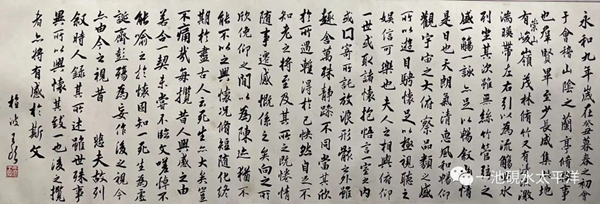 永和九年歲在癸丑暮春之初會
于會稽山陰之蘭亭脩禊事
也群賢畢至少長咸集此地
有崇山峻領茂林脩竹又有清流激
湍暎帶左右引以為流觴曲水
列坐其次雖無絲竹管弦之
盛一觴一詠亦足以暢敘幽情
是日也天朗氣清惠風和暢仰
觀宇宙之大俯察品類之盛
所以遊目騁懷足以極視聽之
娛信可樂也夫人之相與俯仰
一世或取諸懷抱悟言一室之內
或因寄所託放浪形骸之外雖
趣舍萬殊靜躁不同當其欣
於所遇暫得於己快然自足不
知老之將至及其所之既惓情
隨事遷感慨係之矣向之所
欣俛仰之間以為陳迹猶不
能不以之興懷況脩短隨化終
期於盡古人云死生亦大矣豈
不痛哉每攬昔人興感之由
若合一契未嘗不臨文嗟悼不
能喻之於懷固知一死生為虛
誕齊彭殤為妄作後之視今
亦由今之視昔 悲夫故列
敘時人錄其所述雖世殊事
異所以興懷其致一也後之攬
者亦將有感於斯文
一池硯水太平洋